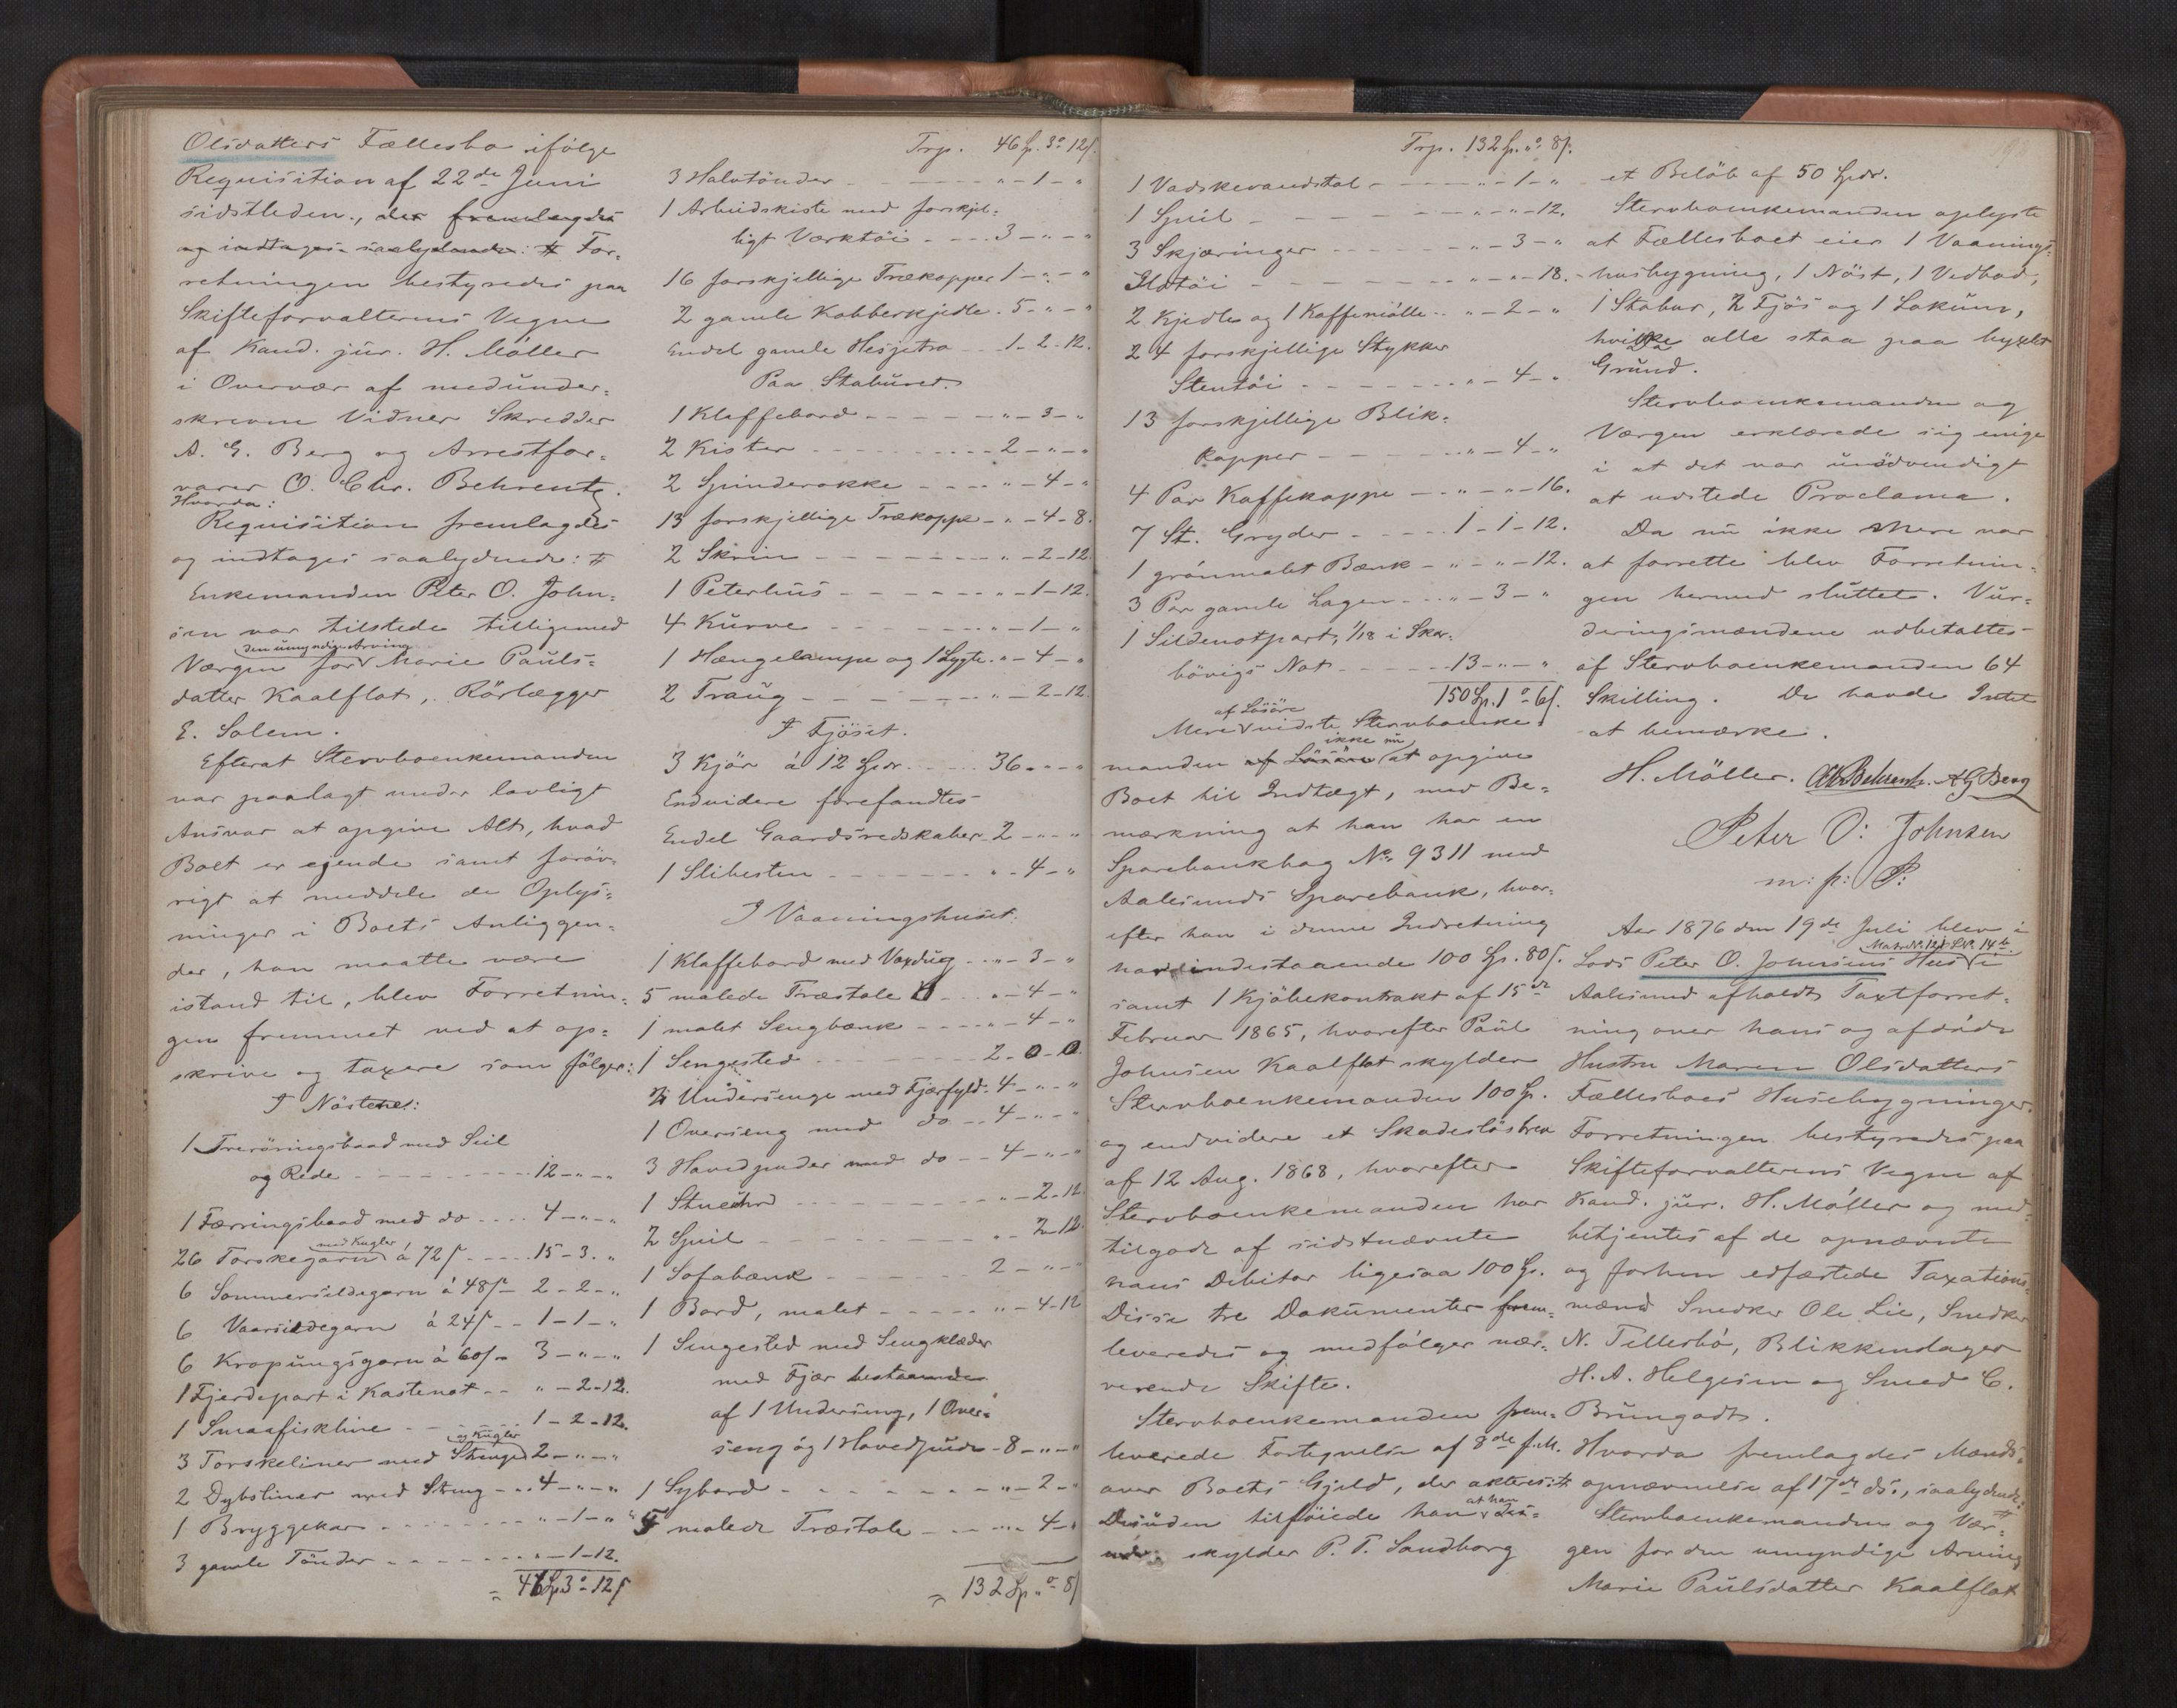 Olsdatters Fællesbo ifølge
Requisition af 22de Juni
sidstleden., der fremlagdes
og indtages saalydende: # For-
retningen bestyredes paa
Skifteforvalterens Vegne
af Kand. jur. H. Møller
i Overvær af medunder-
skrevne Vidner Skredder
A. G. Berg og Arrestfor-
varer O. Chr. Behrentz.
Hvorda:
Requisition fremlagdes
og indtages saalydende: #
Enkemanden Peter O. John-
sen var tilstede tilligemed
den umyndige Arving
Værgen for Marie Pauls-
datter Kaalflat, Rörlægger
E. Solem.
Efterat Stervboenkemanden
var paalagt under lovligt
Ansvar at opgive Alt, hvad
Boet er eiende samt forøv-
rigt at meddele de Oplys-
ninger i Boets Anliggen-
der, han maatte være
istand til, blev Forretnin-
gen fremmet ved at op-
skrive og taxere som følger:
I Nöstene:
1 Trerøringsbaad med Seil
og Rede - - - 12 - " - "
1 Færringsbaad med do - - - 4 - " - "
med Kugler
26 Torskegarn á 72 s - - - 15 - 3 - "
6 Sommersildegarn á 48 s - 2 - 2 - "
6 Vaarsildegarn á 24 s - - 1 - 1 - "
6 Kropungsgarn á 60 s - 3 - " - "
1 Fjerdepart i Kastenot - - " - 2 - 12.
1 Smaafiskline - - 1 - 2 - 12.
og Kugler
3 Torskeliner med Strenge 2 - " - "
2 Dybsliner med Streng - - 4 - " - "
1 Bryggekar - - - " - 1 - "
3 gamle Tönder - - - " - 1 - 12.
= 46 Sp 3 o - 12 s
Trsp. 46 Sp. 3 o 12 s.
3 Halvtönder - - - " - 1 - "
1 Arbeidskiste med forskjel-
ligt Værktöi - - - 3 - " - "
16 forskjellige Trækopper 1 - " - "
2 gamle Kobberkjedle - 5 - " - "
Endel gamle Hesjetræ - - 1 - 2 - 12.
Paa Staburet.
1 Klaffebord - - - " - 3 - "
2 Kister - - - 2 - " - "
2 Spinderokke - - - " - 4 - "
13 forskjellige Trækoppe - " - 4 - 8.
2 Skrin - - - " - 2 - 12.
1 Peterhus - - - " - 1 - 12.
4 Kurve - - - " - 1 - "
1 Hængelampe og 1 Lygte. " - 4 - "
2 Traug - - - " - 2 - 12.
I Fjöset.
3 Kjör á 12 Spdr. - - - 36 - " - "
Endvidere forefandtes
Endel Gaardsredskaber - 2 - " - "
1 Slibesten - - - " - 4 - "
I Vaaningshuset.
1 Klaffebord med Voxdug - - " - 3 - "
5 malede Træstole - - - " - 4 - "
1 malet Sengbænk - - - " - 4 - "
1 Sengested - - - 2 - 0 - 0.
2 Undersenge med Fjærfyld: 4 - " - "
1 Overseng med do - - 4 - " - "
3 Hovedpuder med do - - 4 - " - "
1 Stueuhr - - - " - 2 - 12.
2 Speil - - - " - 2 - 12.
1 Sofabænk - - - 2 - " - "
1 Bord, malet - - - " - 4 - 12
1 Sengested med Sengklæder
med Fjær bestaaende
af 1 Underseng, 1 Over-
seng og 1 Hovedpude - 8 - " - "
1 Sybord - - - " - 2 - "
5 malede Træstole - - - " - 4 - "
= 132 Sp " o - 8 s
Trsp. 132 Sp. " o 8 s.
1 Vadskevandstol - - - " - 1 - "
1 Speil - - - " - " - 12.
3 Skjæringer - - - " - 3 - "
Ildtöi - - - " - " - 18.
2 Kjedle og 1 Kaffemölle - " - 2 - "
24 forskjellige Stykker
Stentöi - - - " - 4 - "
13 forskjellige Blik-
kopper - - - " - 4 - "
4 Par Kaffekoppe - - " - " - 16.
7 St. Gryder - - - 1 - 1 - 12.
1 grönmalet Bænk - " - " - 12.
3 Par gamle Lagen - - " - 3 - "
1 Sildenotpart, 1/18 i Skor-
hövigs Not - - - 13 - " - "
150 Sp. 1 o - 6 s.
af Lösöre
Mere vidste Stervboenke-
ikke nu
manden af Lösöre at opgive
Boet til Indtægt, med Be-
mærkning at han har en
Sparebankbog No. 9311 med
Aalesunds Sparebank, hvor-
efter han i denne Indretning
har indestaaende 100 Sp. 80 s.
samt 1 Kjöbekontrakt af 15de
Februar 1865, hvorefter Paul
Johnsen Kaalflat skylder
Stervboenkemanden 100 Sp.
og endvidere et Skadeslösbrev
af 12 Aug. 1868, hvorefter
Stervboenkemanden har
tilgode af sidstnævnte
hans Debitor ligesaa 100 Sp.
Disse tre Dokumenter frem-
leveredes og medfölger nær-
værende Skifte.
Stervboenkemanden frem-
leverede Fortegnelse af 8de f.M.
over Boets Gjeld, der akteres: #
at han
Desuden tilföiede han
skylder P. T. Sandborg
et Belöb af 50 Spdr.
Stervboenkemanden oplyste
at Fællesboet eier 1 Vaanings-
husbygning, 1 Nöst, 1 Vedbod,
1 Stabur, 2 Fjös og 1 Lokum,
hvilke alle staa paa byxlet
Grund.
Stervboenkemanden og
Værgen erklærede sig enige
i at det var unödvendigt
at udstede Proclama.
Da nu ikke Mere var
at forrette blev Forretnin-
gen hermed sluttet. Vur-
deringsmændene udbetaltes
af Stervboenkemanden 64
Skilling. De havde Intet
at bemærke.
H. Möller. O Chr Behrentz. A G Berg
Peter O: Johnsen
m: p: P:
Aar 1876 den 19de Juli blev i
Matr. No. 121 LNo. 14b
Lods Peter O. Johnsens Hus i
Aalesund afholdt Taxtforret-
ning over hans og afdöde
Hustru Maren Olsdatters
Fællesboes Husebygninger.
Forretningen bestyredes paa
Skifteforvalterens Vegne af
Kand. jur. H. Möller og med-
betjentes af de opnævnte
og forhen edfæstede Taxations-
mænd Snedker Ole Lie, Snedker
N. Tellesbö, Blikkenslager
H. A. Helgesen og Smed C.
Brungodt.
Hvorda fremlagdes Mands-
opnævnelse af 17de ds., saalydende: #
Stervboenkemanden og Vær-
gen for den umyndige Arving
Marie Paulsdatter Kaalflat